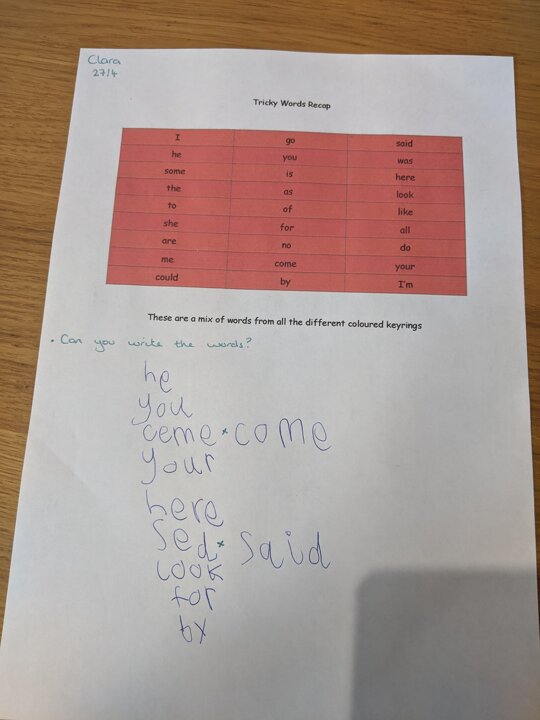 Clara
27/4
Tricky Words Recap
I go said
he you was
some is here
the as look
to of like
she for all
are no do
me come your
could by I'm
These are a mix of words from all the different coloured keyrings
• Can you write the words?
he
you
ceme × come
your
here
sed × said
look
for
by